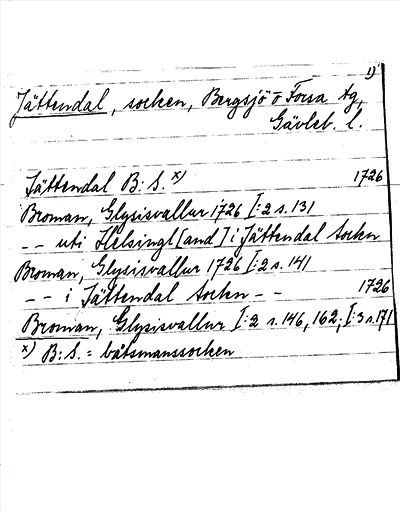 1)
Jättendal, socken, Bergsjö o Forsa tg,
Gävleb. l.
Jättendal B: S. x) 1726
Broman, Glysisvallur 1726 I:2 s. 131
-- uti Helsingl[and] i Jättendal Sockn
Broman, Glysisvallur 1726 I:2 s. 141
-- i Jättendal Sockn -- 1726
Broman, Glysisvallur I:2 s. 146, 162; I:3 s. 171
x) B: S. = båtsmanssocken